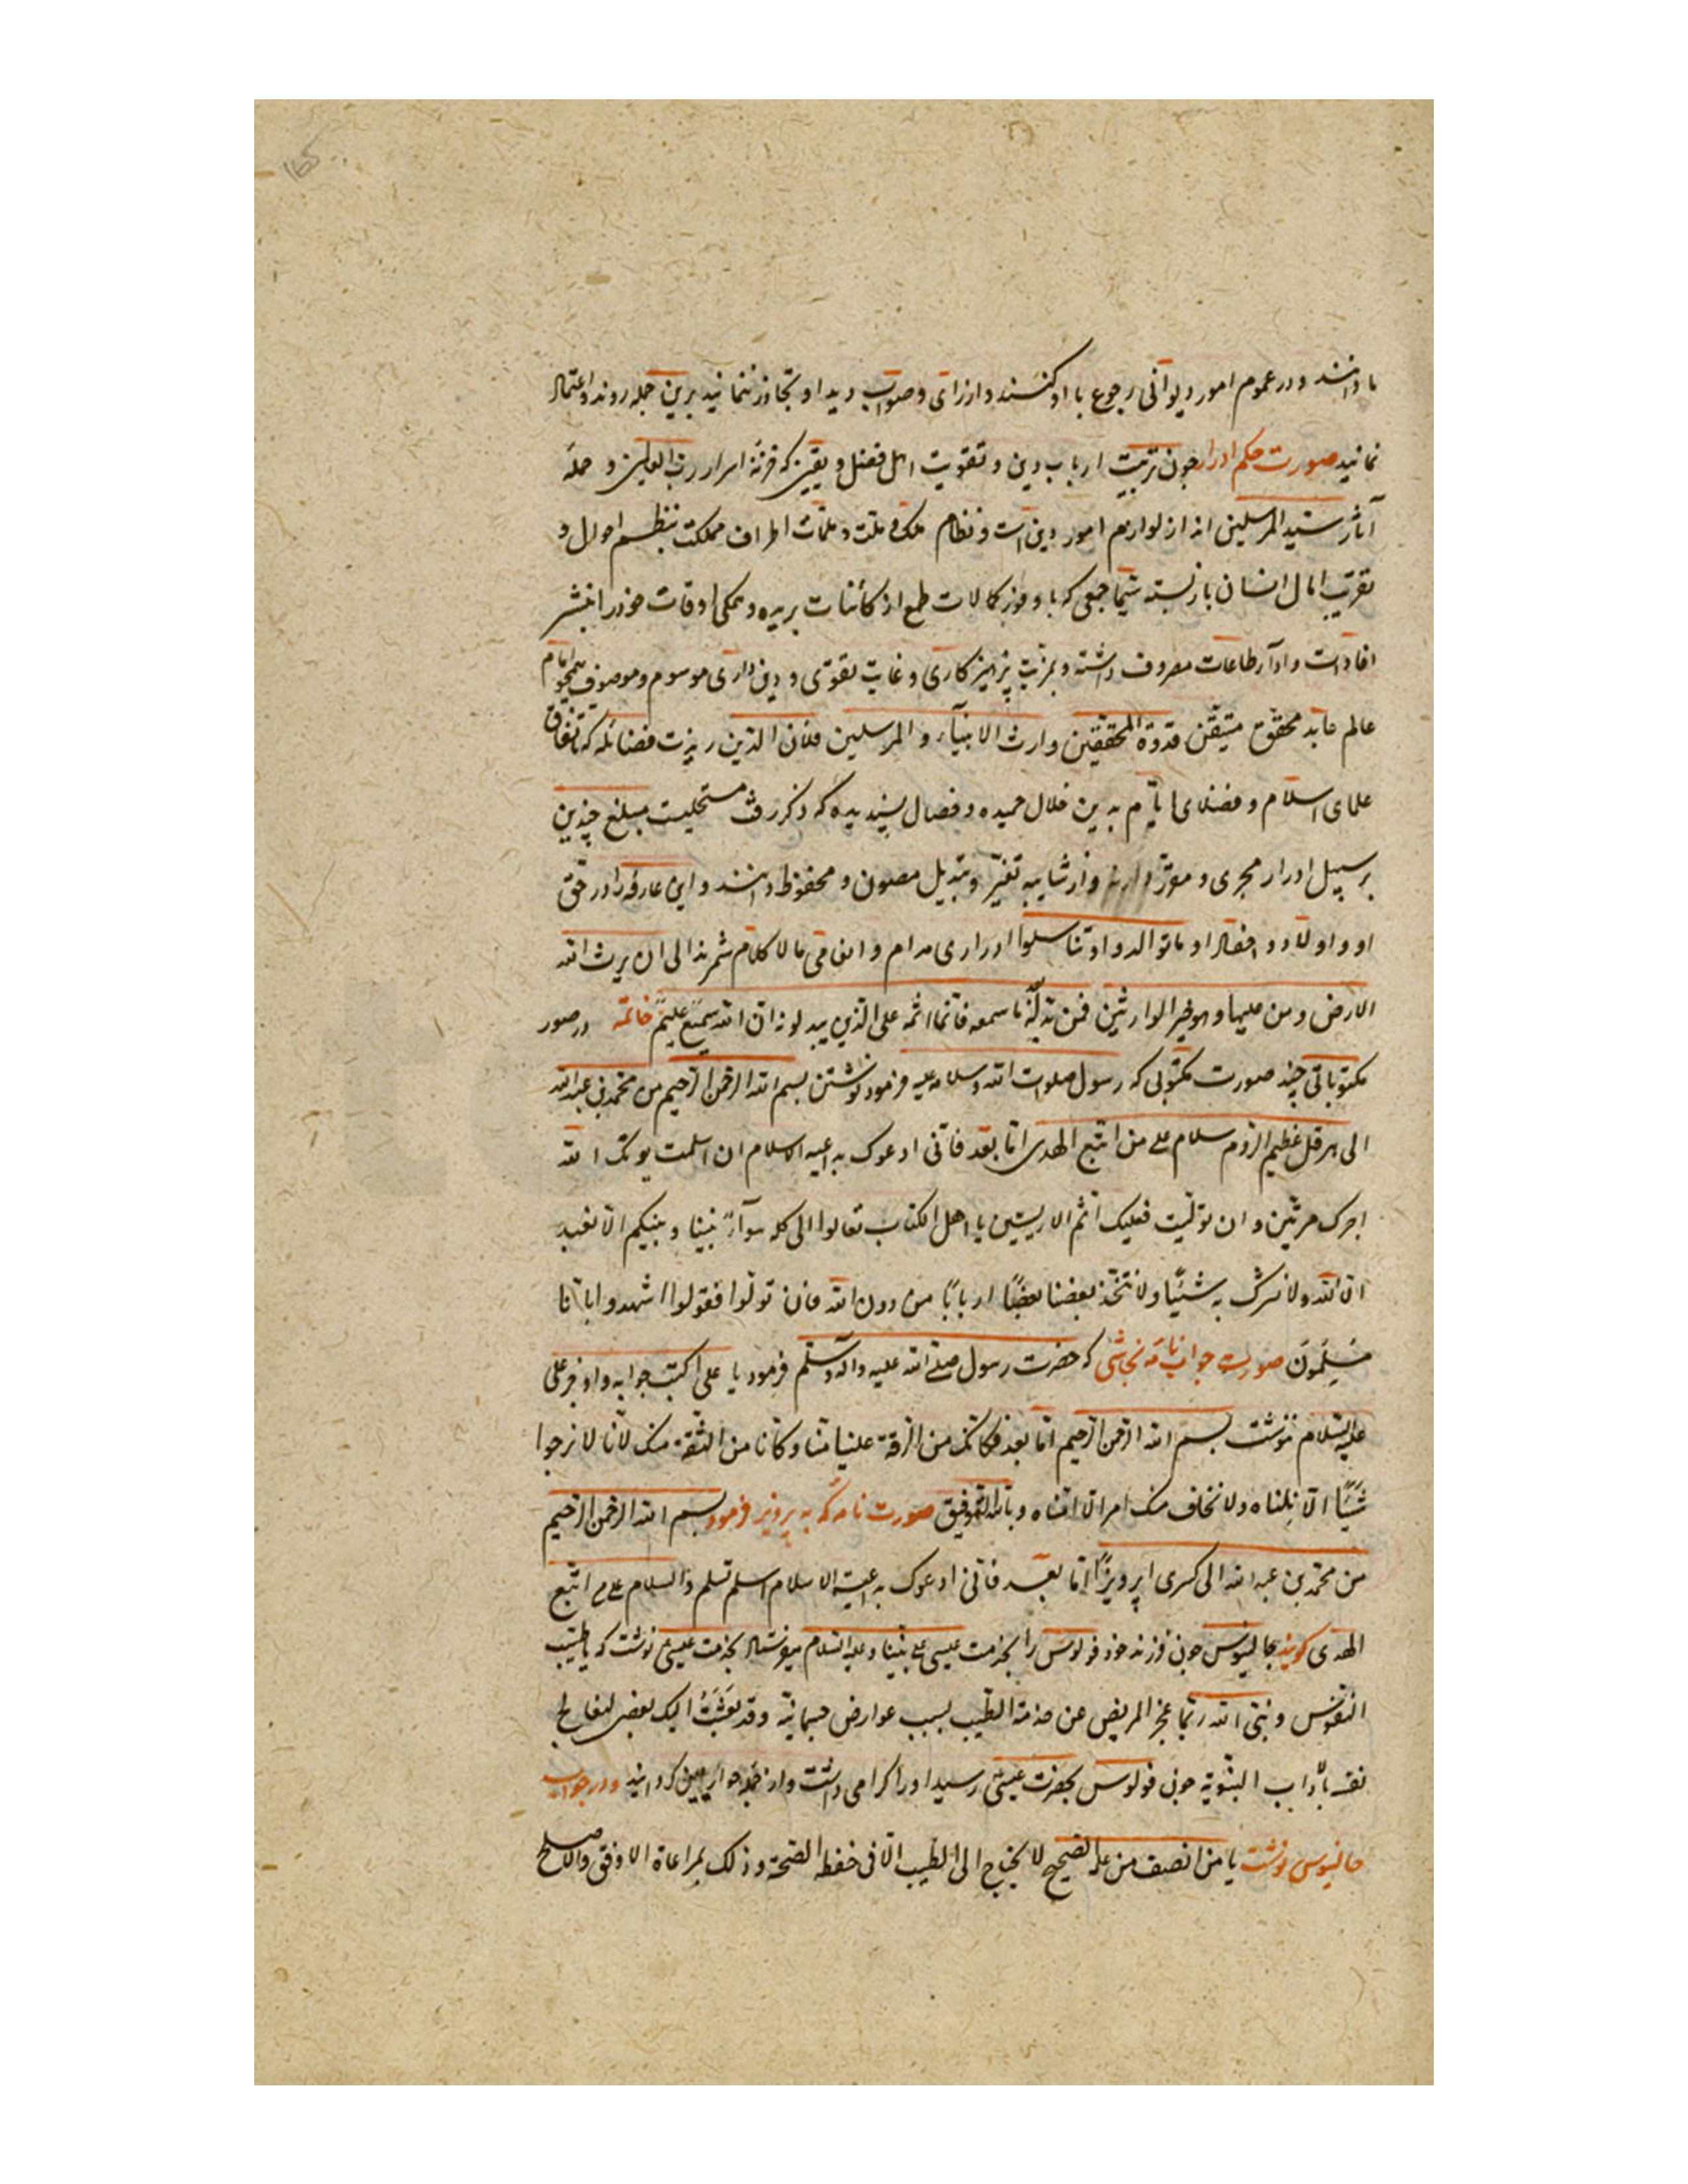 ما دانند و در عموم امور دیوانی رجوع با او کنند و از رای و صواب دید او تجاوز ننمایند برین جمله روند و اعتماد
نمایند صورت حکم ادرار چون تربیت ارباب دین و تقویت اهل فضل و یقین که خزنهٔ اسرار رب العالمین و حملهٔ
آثار سید المرسلین اند از لوازم امور دین است و نظام ملک و ملت و اطراف مملکت بتنظیم احوال و
امال ایشان باز بسته سیما جمعی که با وفور کمالات طمع از کائنات بریده و همگی اوقات خود را بنشر
افادات و ادآء طاعات مصروف داشته و بمزیت پرهیزکاری و غایت تقوی و دین داری موسوم و موصوف همچو امام
عالم عابد محقق متیقن قدوة المحققین وارث الانبیآء و المرسلین فلان الذین فضائله که باتفاق
علمای اسلام و فضلای ایام بدین خلال حمیده و خصال پسندیده که ذکر رفت متحلیست مبلغ چندین
بر سبیل ادرار مجری و مقرر دارند و از شایبه تغیر و تبدیل مصون و محفوظ دانند و این عارفه را در حق
او و اولاد و احفاد او ما توالدوا و تناسلوا ادراری مدام و انعامی ما لا کلام شمرند الی ان یرث الله
الارض و من علیها و هو خیر الوارثین فمن بدله بعد ما سمعه فانما اثمه علی الذین یبدلونه ان الله سمیع علیم خاتمه در صور
مکتوباتی چند صورت مکتوبی که رسول صلوات الله و سلامه علیه فرمود نوشتن بسم الله الرحمن الرحیم من محمد بن عبد الله
الی هرقل عظیم الروم سلام علی من اتبع الهدی اما بعد فانی ادعوک بداعیه الاسلام ان اسلمت یوتک الله
اجرک مرتین و ان تولیت فعلیک اثم الاریسیین یا اهل الکتاب تعالوا الی کلمه سوآء بیننا و بینکم الا نعبد
الا الله و لا نشرک به شیئا و لا نتخذ بعضنا بعضا اربابا من دون الله فان تولوا فقولوا اشهدوا بانا
مسلمون صورت جواب نامهٔ نجاشی که حضرت رسول صلی الله علیه و اله و سلم فرمود یا علی اکتب جوابه و اوجز علی
علیه السلام نوشت بسم الله الرحمن الرحیم اما بعد فکانک من الرقة علینا منا و کانا من الثقة منک لانا لا نرجوا
شیئا الا نلناه و لا نخاف منک امرا الا امناه و بالله التوفیق صورت نامه که به پرویز فرمود بسم الله الرحمن الرحیم
من محمد بن عبد الله الی کسری اپرویز اما بعد فانی ادعوک بداعیة الاسلام اسلم تسلم و السلام علی من اتبع
الهدی گویند جالینوس چون فرزند خود فولوس را بخدمت عیسی علی نبینا و علیه السلام میفرستاد بخدمت عیسی نوشت که یا طبیب
النفوس و نبی الله ربما عجز المریض عن خدمة الطبیب بسبب عوارض جسمانیة و قد بعثت الیک بعضی لتعالج
نفسه بآداب النبویة چون فولوس بحضرت عیسی رسید او را گرامی داشت و از جمله حواریین گردانید و در جواب
جالینوس نوشت یا من انصف من علمه الصحیح لا یحتاج الی الطبیب الا فی حفظ الصحة و ذلک بمراعاة الاوفق و الاصلح